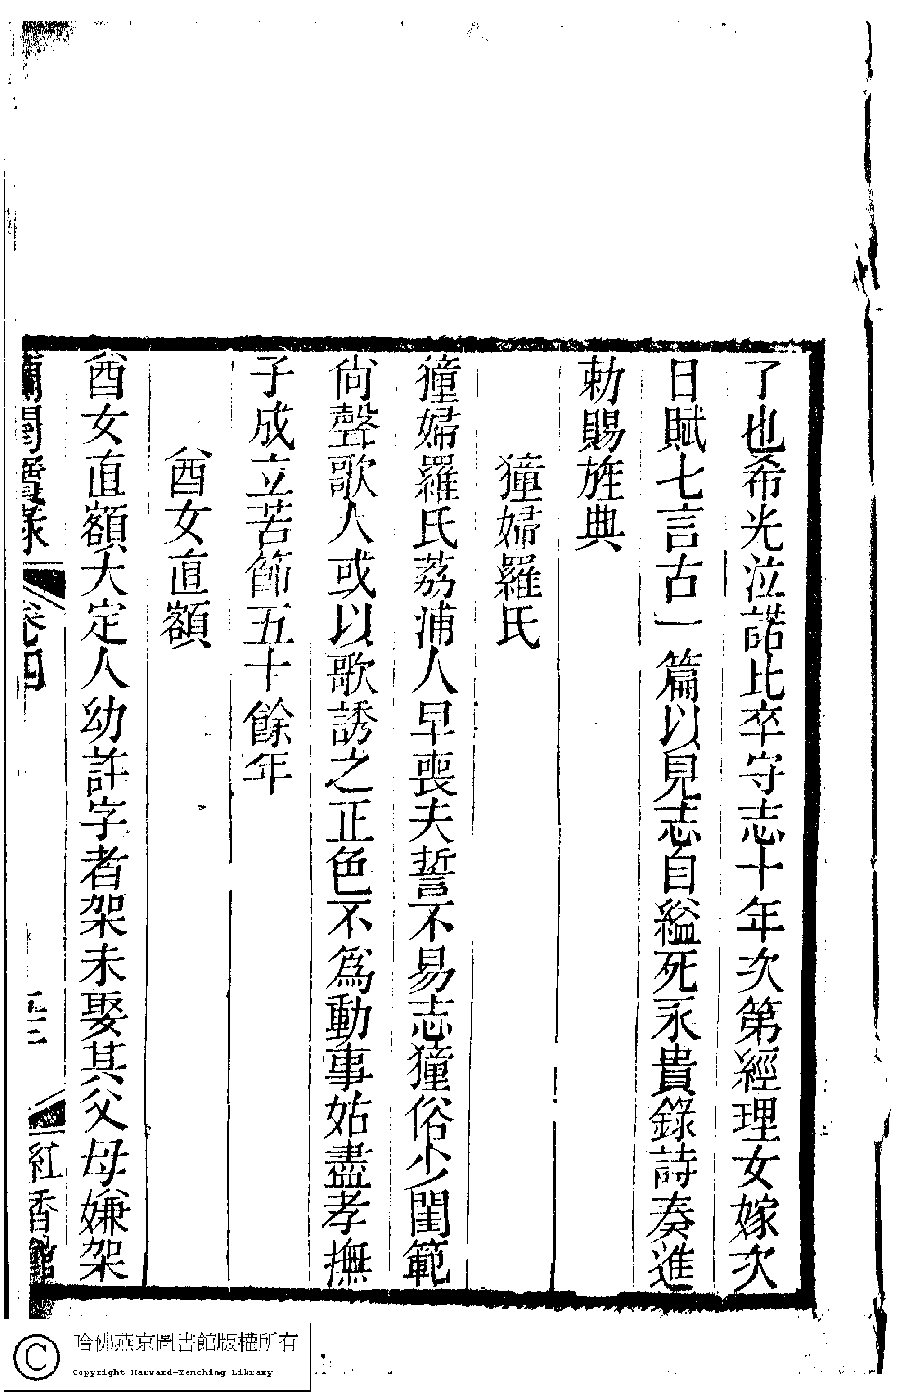 了也希光泣諾比卒守志十年次第經理女嫁次
日賦七言古一篇以見志自縊死永貴錄詩奏進
勅賜旌典
獞婦羅氏
獞婦羅氏荔浦人早喪夫誓不易志獞俗少閨範
尙聲歌人或以歌誘之正色不爲動事姑盡孝撫
子成立苦節五十餘年
酋女直額
酋女直額大定人幼許字者架未娶其父母嫌架
蘭閨寶錄
卷四
三
紅香館
哈佛燕京圖書館版權所有
Copyright Harvard-Yenching Library